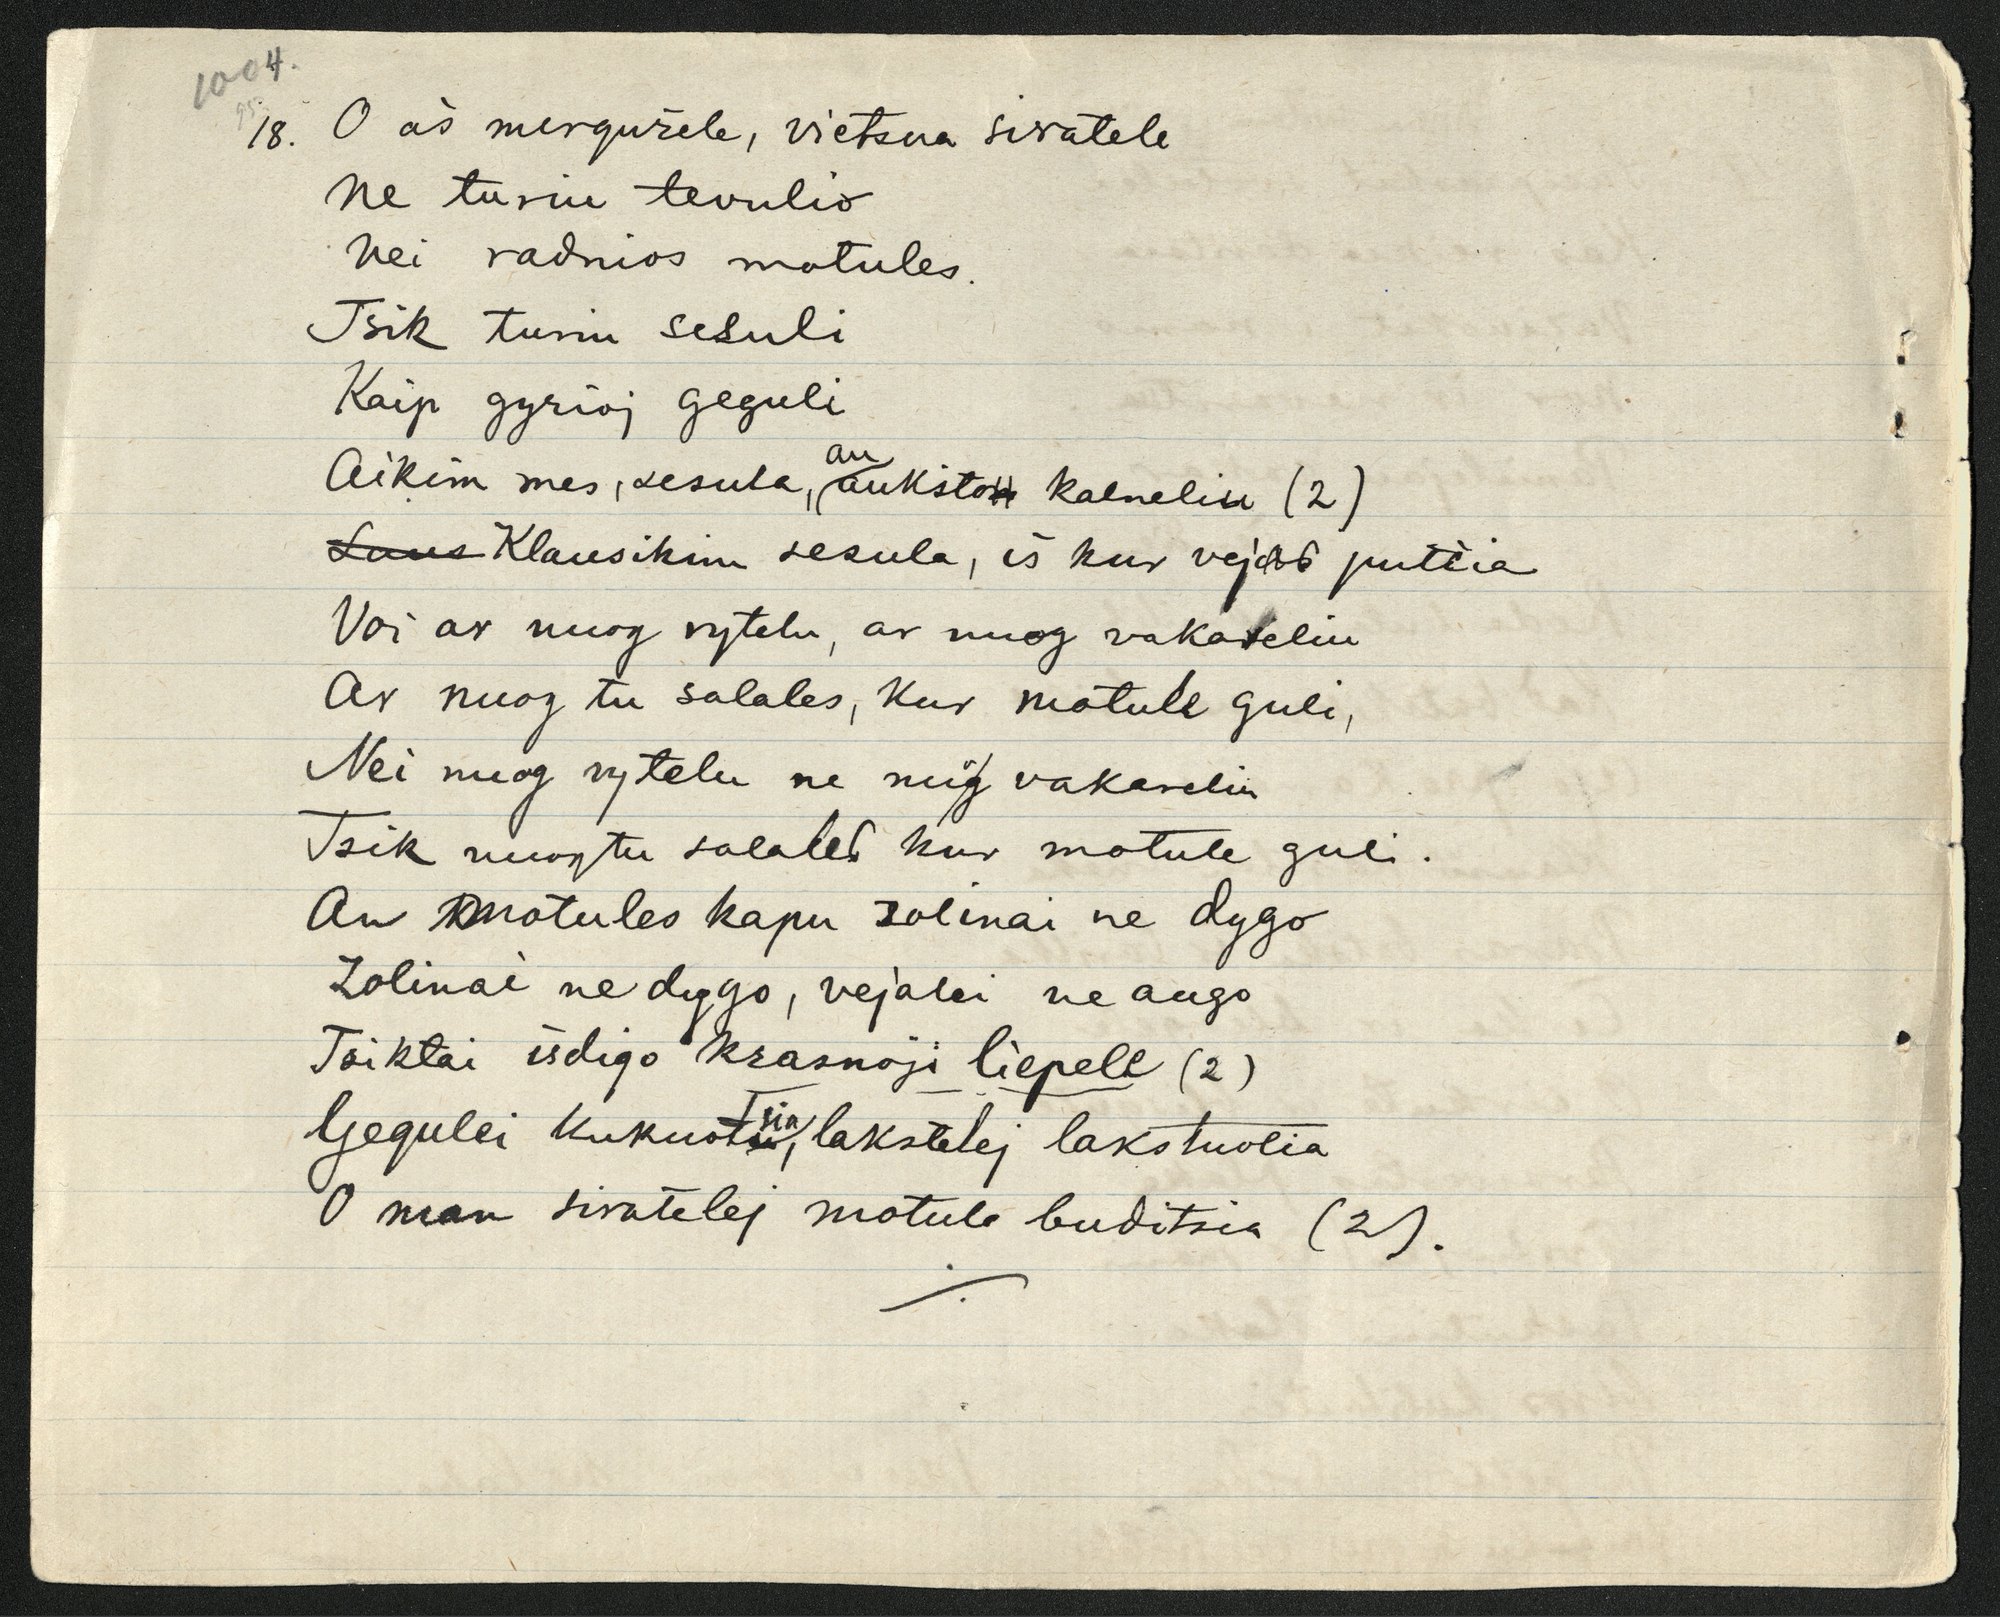 1004.
18. O aš mergužele, vietsna siratele
Ne turiu tevulio
Nei radnios motules.
Tsik turiu sesuli
Kaip gyrioj geguli
Aikim mes, sesula, an aukšto kalneliu (2)
Klausikim sesula, iš kur vejas putčia
Voi ar nuog rytelu, ar nuog vakareliu
Ar nuog tu salales, kur motule guli,
Nei nuog rytelu ne nuog vakareliu
Tsik nuog tu salales kur motule guli.
An motules kapu zolinai ne dygo
Zolinai ne dygo, vejalei ne augo
Tsiktai išdigo krasnoji liepele (2)
Gegulei kukuotsia, lakstelej lakstuotia
O man siratelej motule buditsia (2).